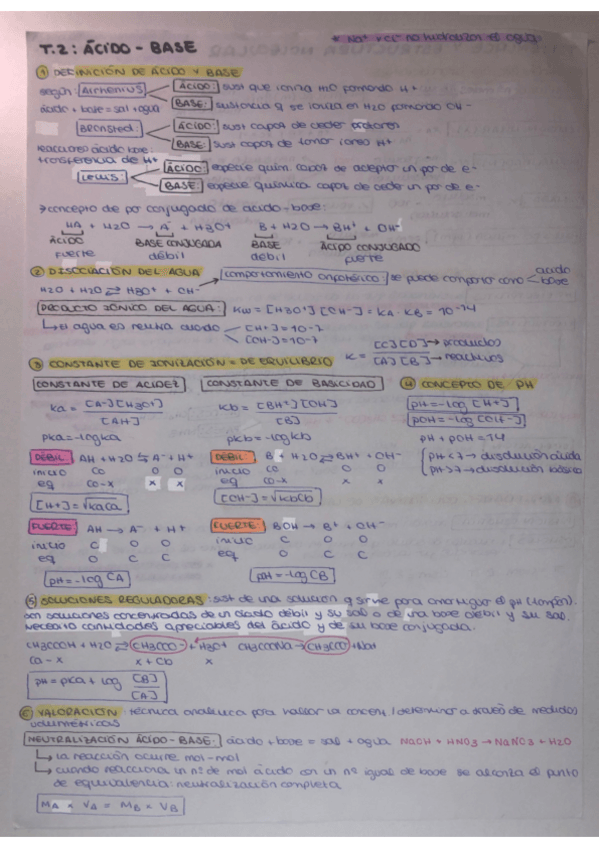 * Na+ y Cl- no hidrolizan el agua
T.2: ÁCIDO - BASE
① DEFINICIÓN DE ÁCIDO Y BASE
según: Arrhenius: ÁCIDO: sust que ioniza H2O formando H+
ácido + base = sal + agua BASE: sustancia q se ioniza en H2O formando OH-
Bronsted: ÁCIDO: sust capaz de ceder protones
BASE: sust capaz de tomar iones H+
reacciones ácido base:
transferencia de H+
Lewis: ÁCIDO: especie quím. capaz de aceptar un par de e-
BASE: especie química capaz de ceder un par de e-
→ concepto de par conjugado de ácido-base:
HA + H2O → A- + H3O+ B + H2O → BH+ + OH-
ÁCIDO BASE CONJUGADA BASE ÁCIDO CONJUGADO
fuerte débil débil fuerte
② DISOCIACIÓN DEL AGUA comportamiento anfotérico: se puede comportar como ácido base
H2O + H2O ⇄ H3O+ + OH-
PRODUCTO IÓNICO DEL AGUA: Kw = [H3O+] [OH-] = KA · KB = 10-14
↳ el agua es neutra cuando [H+] = 10-7
[OH-] = 10-7
③ CONSTANTE DE IONIZACIÓN = DE EQUILIBRIO K = [C] [D] → productos
[A] [B] → reactivos
CONSTANTE DE ACIDEZ CONSTANTE DE BASICIDAD ④ CONCEPTO DE PH
Ka = [A-] [H3O+] Kb = [BH+] [OH] pH = -log [H+]
[AH] [B] pOH = -log [OH-]
pKa = -log Ka pKb = -log Kb pH + pOH = 14
pH < 7 → disolución ácida
pH > 7 → disolución básica
DÉBIL: AH + H2O ⇄ A- + H+ DÉBIL: B + H2O ⇄ BH+ + OH-
inicio C0 0 0 inicio C0 0 0
eq C0-x x x eq C0-x x x
[H+] = √KaCa [OH-] = √KbCb
FUERTE: AH → A- + H+ FUERTE: BOH → B+ + OH-
inicio C 0 0 inicio C 0 0
eq 0 C C eq 0 C C
pH = -log CA pH = -log CB
⑤ SOLUCIONES REGULADORAS: sust de una solución q sirve para amortiguar el pH (tampón).
son soluciones concentradas de un ácido débil y su sal o de una base débil y su sal.
necesito cantidades apreciables del ácido y de su base conjugada.
CH3COOH + H2O ⇄ CH3COO- + H3O+ CH3COONa → CH3COO- + Na+
Ca - x x + Cb x
pH = pKa + log [B]
[A]
⑥ VALORACIÓN: técnica analítica para hallar la concent. / determinar a través de medidas
volumétricas
NEUTRALIZACIÓN ÁCIDO-BASE: ácido + base = sal + agua NaOH + HNO3 → NaNO3 + H2O
↳ la reacción ocurre mol-mol
↳ cuando reacciona un nº de mol ácido con un nº igual de base se alcanza el punto
de equivalencia: neutralización completa
MA × VA = MB × VB